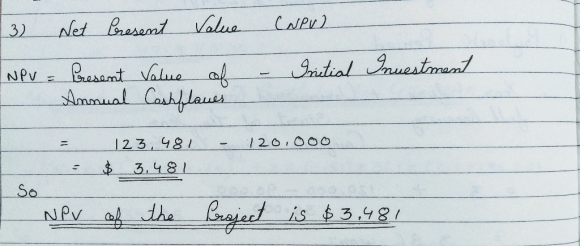 3) Net Present Value (NPV)
NPV = Present Value of - Initial Investment
Annual Cashflows
= 123,481 - 120,000
= $ 3,481
So
NPV of the Project is $3,481